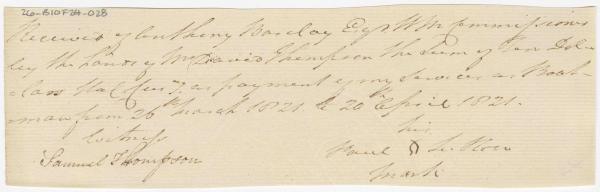 26-B10F24-028
Received of Anthony Barclay Esqr H M Commissioner
by the hands of Mr David Thompson the Sum of Ten Dol-
-lars as payment of my Services as Boat-
-man from 26th March 1821 to 20th April 1821.
Witness his
Samuel Thompson Paul
mark